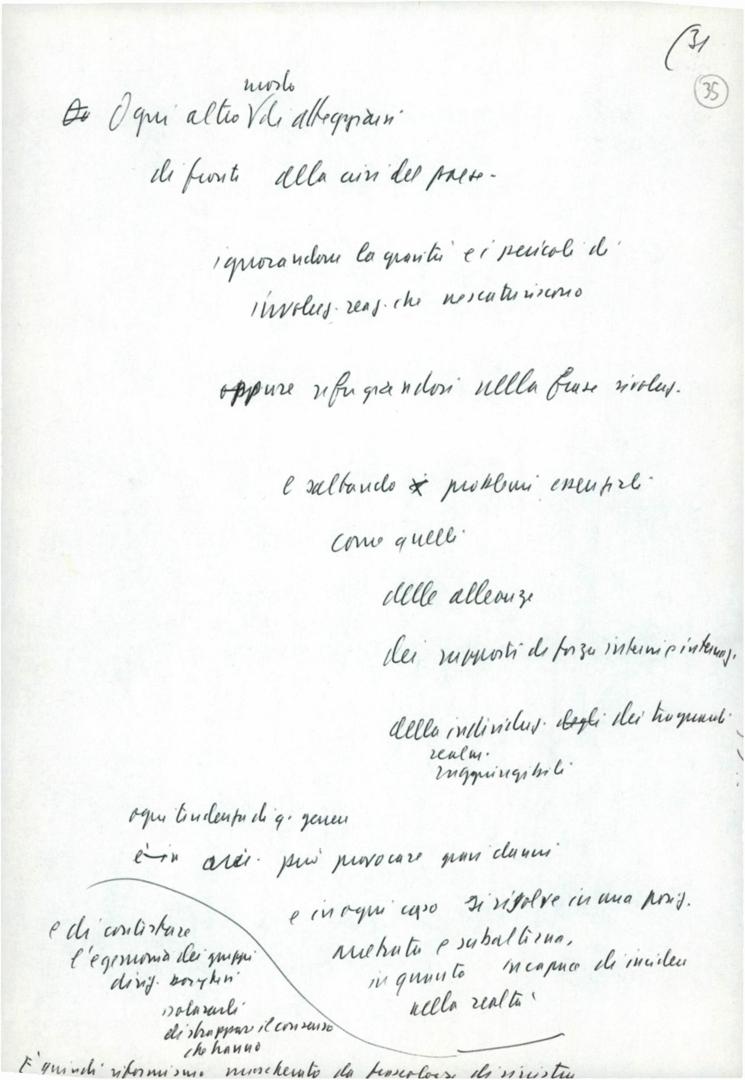 (31
35
modo
Ogni altro V di atteggiarsi
di fronte alla crisi del paese -
ignorandone la gravità e i pericoli di
involuz. reaz. che ne scaturiscono
oppure rifugiandosi nella frase rivoluz.
e saltando problemi essenziali
come quelli
delle alleanze
dei rapporti di forza interni e internaz.
della individuaz. degli dei traguardi
realm.
raggiungibili
ogni tendenza di q. genere
è in può provocare gravi danni
e in ogni caso si risolve in una posiz.
arretrata e subalterna,
in quanto incapace di incidere
nella realtà
e di contrastare
l'egemonia dei gruppi
dirig. borghesi
isolarli
di strappare il consenso
che hanno
E' quindi riformismo mascherato da fraseologia di sinistra